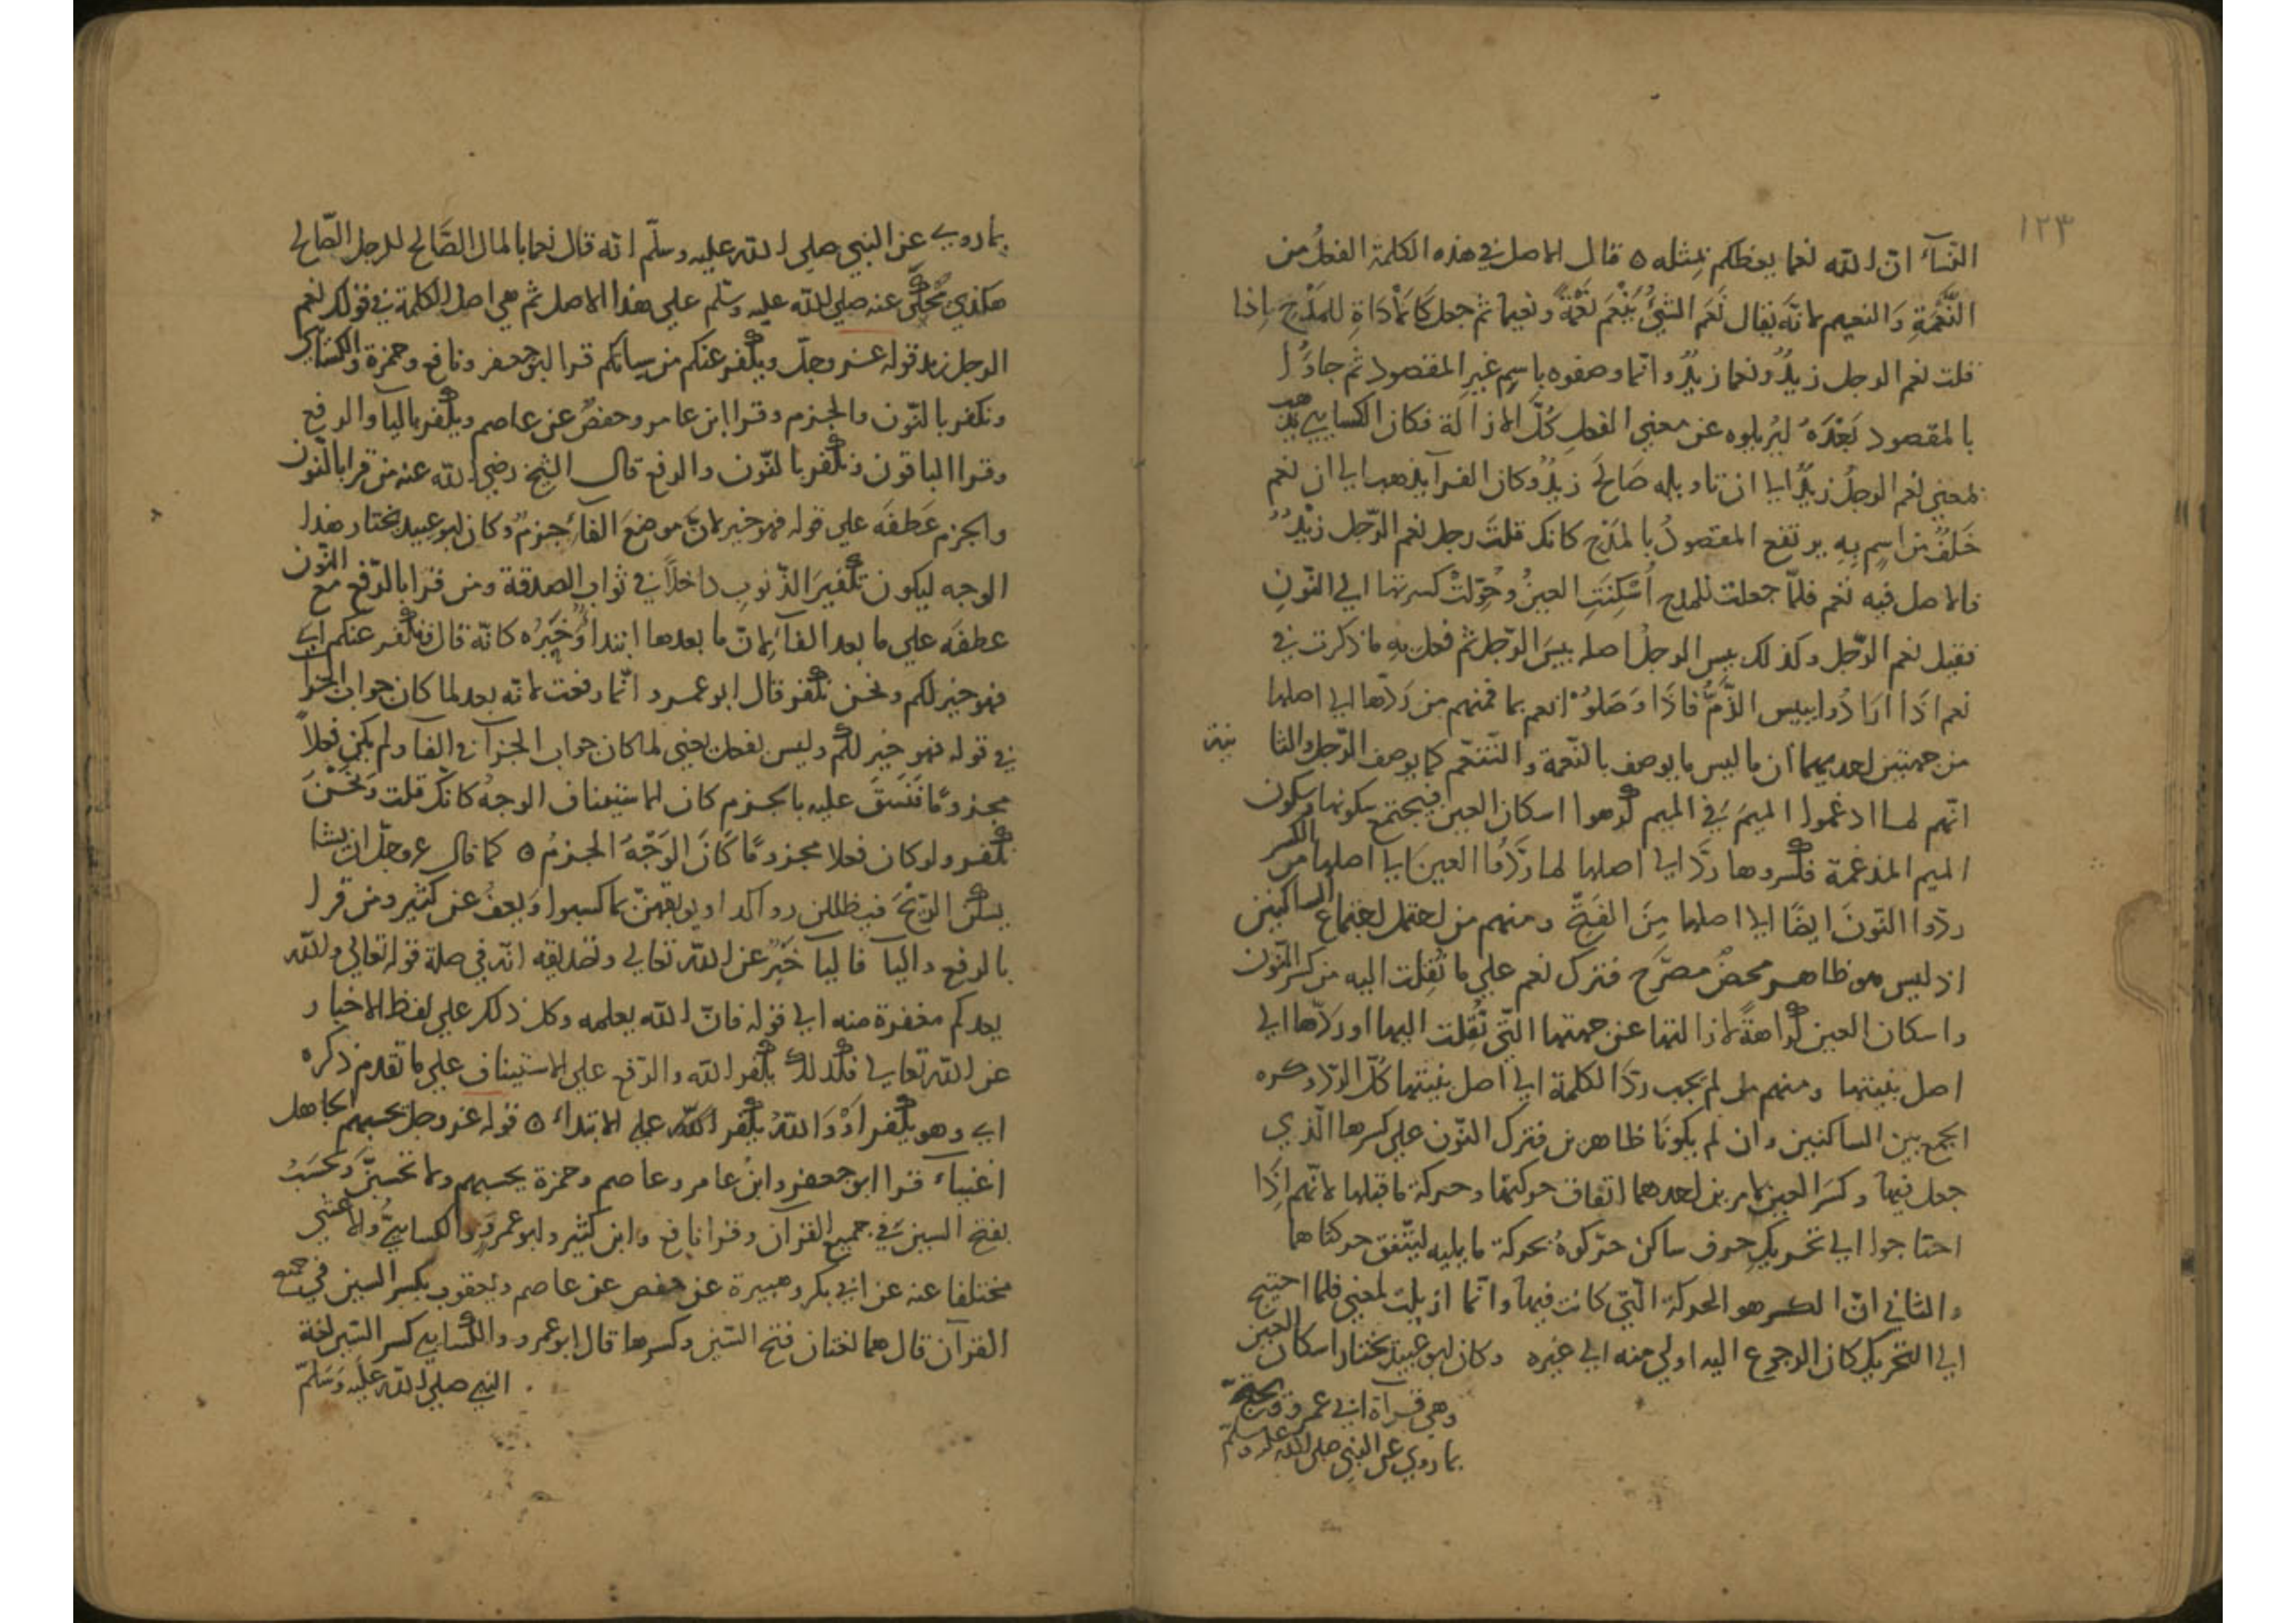 ١٢٣
النساء ان الله نعما يعظكم بمثله ٥ قال الاصل في هذه الكلمة الفعل من
النعمة والنعيم لانه يقال نعم الشئ ينعم نعمة ونعيما ثم جعل كالاداة للمدح اذا
قلت نعم الرجل زيد ونعما زيد وانما وصفوه باسم غير المقصود ثم جاؤا
بالمقصود بعده ليزيلوه عن معنى الفعل كل الازالة فكان الكسايي يذهب
بمعنى نعم الرجل زيد الى ان تاويله صالح زيد وكان الفرآ يذهب الى ان نعم
خلف من اسم به يرتفع المقصود بالمدح كانك قلت رجل نعم الرجل زيد
فالاصل فيه نعم فلما جعلت للمدح اسكنت العين وحولت كسرتها الى النون
فقيل نعم الرجل وكذلك بيس الرجل اصله بيس الرجل ثم فعل به ما ذكرت في
نعم اذا ارادوا ببيس الذم فاذا وصلوا نعم بما فمنهم من ردها الى اصلها
من جهتين احديهما ان ما ليس ما يوصف بالنعمة والتنعم كما يوصف الرجل والثانية
انهم لما ادغموا الميم في الميم كرهوا اسكان العين فيجتمع سكونها وسكون
الميم المدغمة فكسروها ردا الى اصلها لما ردوا العين الى اصلها من الكسر
ردوا النون ايضا الى اصلها من الفتح ومنهم من احتمل اجتماع الساكنين
اذ ليس هو ظاهر محض مصرح فترك نعم على ما نقلت اليه من كسر النون
واسكان العين كراهة لازالتها عن جهتها التي نقلت اليها او ردها الى
اصل بنيتها ومنهم من لم يجب رد الكلمة الى اصل بنيتها كل الرد وكره
الجمع بين الساكنين وان لم يكونا ظاهرين فترك النون على كسرها الذي
جعل فيها وكسر العين لامرين احدهما اتفاق حركتها وحركة ما قبلها لانهم اذا
احتاجوا الى تحريك حرف ساكن حركوه بحركة ما يليه ليتفق حركتاهما
والثاني ان الكسر هو الحركة التي كانت فيها وانما ازيلت لمعنى فلما احتيج
الى التحريك كان الرجوع اليه اولى منه الى غيره وكان ابو عبيد يختار اسكان العين
وهي قرآة ابي عمرو ويحتج
بما روي عن النبي صلى الله عليه وسلم
بما روي عن النبي صلى الله عليه وسلم انه قال نعما بالمال الصالح للرجل الصالح
هكذي يحكى عنه صلى الله عليه وسلم على هذا الاصل ثم هي اصل الكلمة في قولك نعم
الرجل زيد قوله عز وجل ويكفر عنكم من سياتكم قرا ابو جعفر ونافع وحمزة والكسائى
ونكفر بالنون والجزم وقرا ابن عامر وحفص عن عاصم ويكفر باليآ والرفع
وقرا الباقون ونكفر بالنون والرفع قال الشيخ رضي الله عنه من قرا بالنون
والجزم عطفه على قوله فهو خير لان موضع الفآء جزم وكان ابو عبيد يختار هذا
الوجه ليكون تكفير الذنوب داخلا في ثواب الصدقة ومن قرا بالرفع مع النون
عطفه على ما بعد الفآء لان ما بعدها ابتدا وخبره كانه قال ونكفر عنكم اي
فهو خير لكم ونحن نكفر قال ابو عمرو انما رفعت لانه بعد لما كان جواب الجزا
في قوله فهو خير لكم وليس بفعل يعني لما كان جواب الجزآ في الفآ ولم يكن فعلا
مجزوما فننسق عليه بالجزم كان الاستيناف الوجه كانك قلت ونحن
نكفر ولو كان فعلا مجزوما كان الوجه الجزم ٥ كما قال عز وجل ان يشا
يسكن الريح فيظللن رواكد او يوبقهن بما كسبوا ويعف عن كثير ومن قرا
بالرفع واليآ فاليا خبر عن الله تعالى وتصديقه انه في صلة قوله تعالى والله
يعدكم مغفرة منه الى قوله فان الله يعلمه وكل ذلك على لفظ الاخبار
عن الله تعالى فكذلك يكفر الله والرفع على الاستيناف على ما تقدم ذكره
اي وهو يكفر او والله يكفر على الابتداء ٥ قوله عز وجل يحسبهم الجاهل
اغنياء قرا ابو جعفر وابن عامر وعاصم وحمزة يحسبهم ولا تحسبن وتحسب
بفتح السين في جميع القرآن وقرا نافع وابن كثير وابو عمرو والكسايي والاعشى
مختلفا عنه عن ابي بكر وهبيرة عن حفص عن عاصم ويعقوب بكسر السين في جمع
القرآن قال هما لغتان فتح السين وكسرها قال ابو عمرو والكسايي كسر السين لغة
النبي صلى الله عليه وسلم